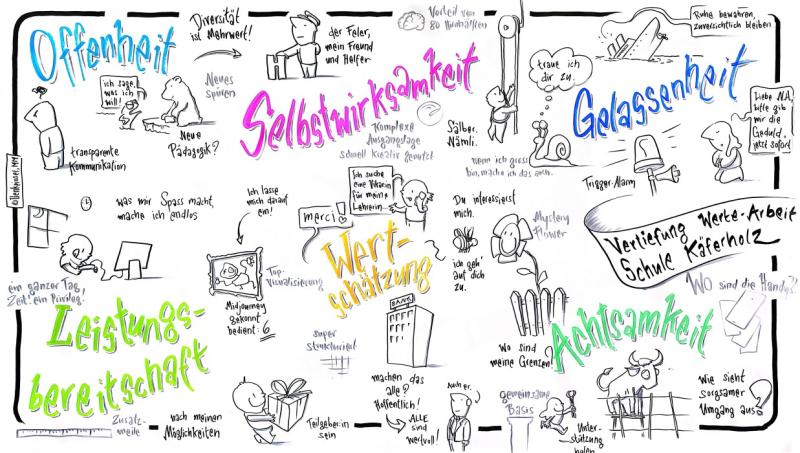 Offenheit
Diversität
ist Mehrwert!
der Feler,
mein Freund
und Helfer
Vorteil von
80 Hirnhälften
Ruhe bewahren,
zuversichtlich bleiben
ich sage,
was ich
will!
Neues
spüren
Neue
Pädagogik?
transparente
Kommunikation
Selbstwirksamkeit
Komplexe
Ausgangslage
schnell kreativ genutzt
Sälber.
Nämli.
traue ich
dir zu.
wenn ich gross
bin, mache ich das auch.
Gelassenheit
Liebe N.A,
bitte gib
mir die
Geduld,
jetzt sofort
Trigger-Alarm
was mir Spass macht,
mache ich endlos
Ich lasse
mich darauf
ein!
Ich suche
eine Vikarin
für meine
Lehrerin...
merci!
Wert-
schätzung
Du interessierst
mich.
ich geh'
auf dich
zu.
Mystery
Flower
Vertiefung Werte-Arbeit
Schule Käferholz
Wo sind die Handys?!
ein ganzer Tag
Zeit! ein Privileg!
Top-
Visualisierung
Midjourney
gekonnt
bedient: 6
super
strukturiert
BANK
Leistungs-
bereitschaft
Wo sind
meine Grenzen?
Achtsamkeit
Wie sieht
sorgsamer
Umgang aus?
Zusatz-
meile
nach meinen
Möglichkeiten
Teilgeber:in
sein
machen das
alle?
Hoffentlich!
ALLE
sind
wertvoll!
Auch er.
gemeinsame
Basis
Unter-
stützung
holen